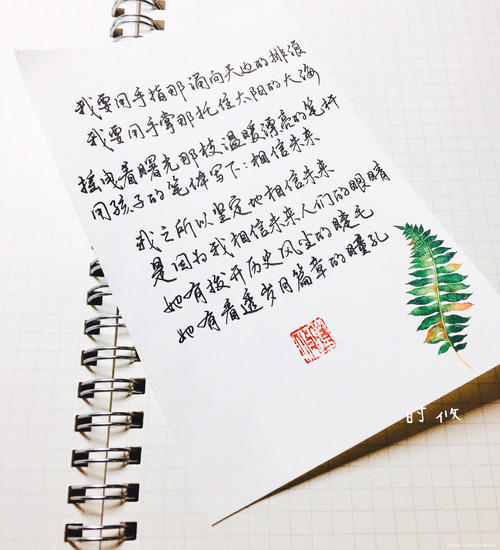 我要用手指那涌向天边的排浪
我要用手掌那托住太阳的大海
摇曳着曙光那枝温暖漂亮的笔杆
用孩子的笔体写下：相信未来
我之所以坚定地相信未来
是因为我相信未来人们的眼睛
她有拨开历史风尘的睫毛
她有看透岁月篇章的瞳孔
时攸